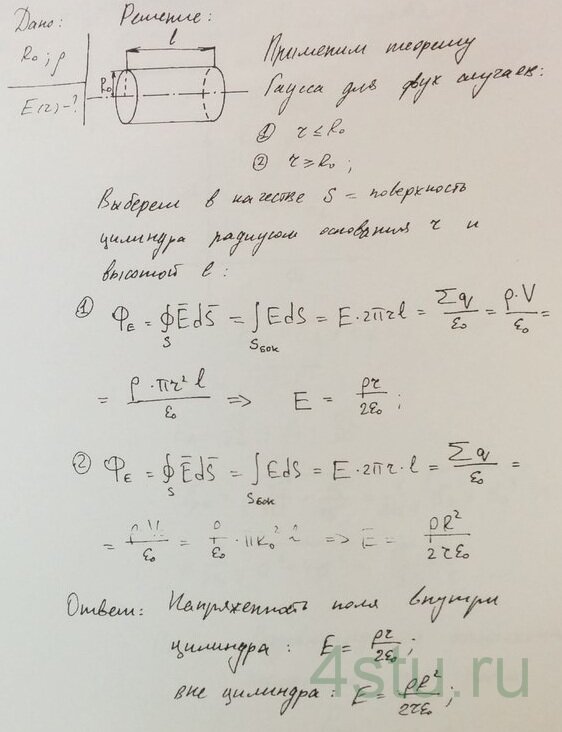 Дано:
Решение:
R₀; ρ
E(r)-?
l
R₀
Применим теорему
Гаусса для двух случаев:
① r ≤ R₀
② r ≥ R₀;
Выберем в качестве S = поверхность
цилиндра радиусом основания r и
высотой l:
① Φ_E = ∮_S E̅ dS̅ = ∫_Sбок E dS = E·2πrl = Σq/ε₀ = ρ·V/ε₀ =
= ρ·πr²l/ε₀ => E = ρr/2ε₀;
② Φ_E = ∮_S E̅ dS̅ = ∫_Sбок E dS = E·2πr·l = Σq/ε₀ =
= ρV/ε₀ = ρ/ε₀ · πR₀² l => E = ρR²/2rε₀
Ответ: Напряженность поля внутри
цилиндра: E = ρr/2ε₀;
вне цилиндра: E = ρR²/2rε₀;
4stu.ru